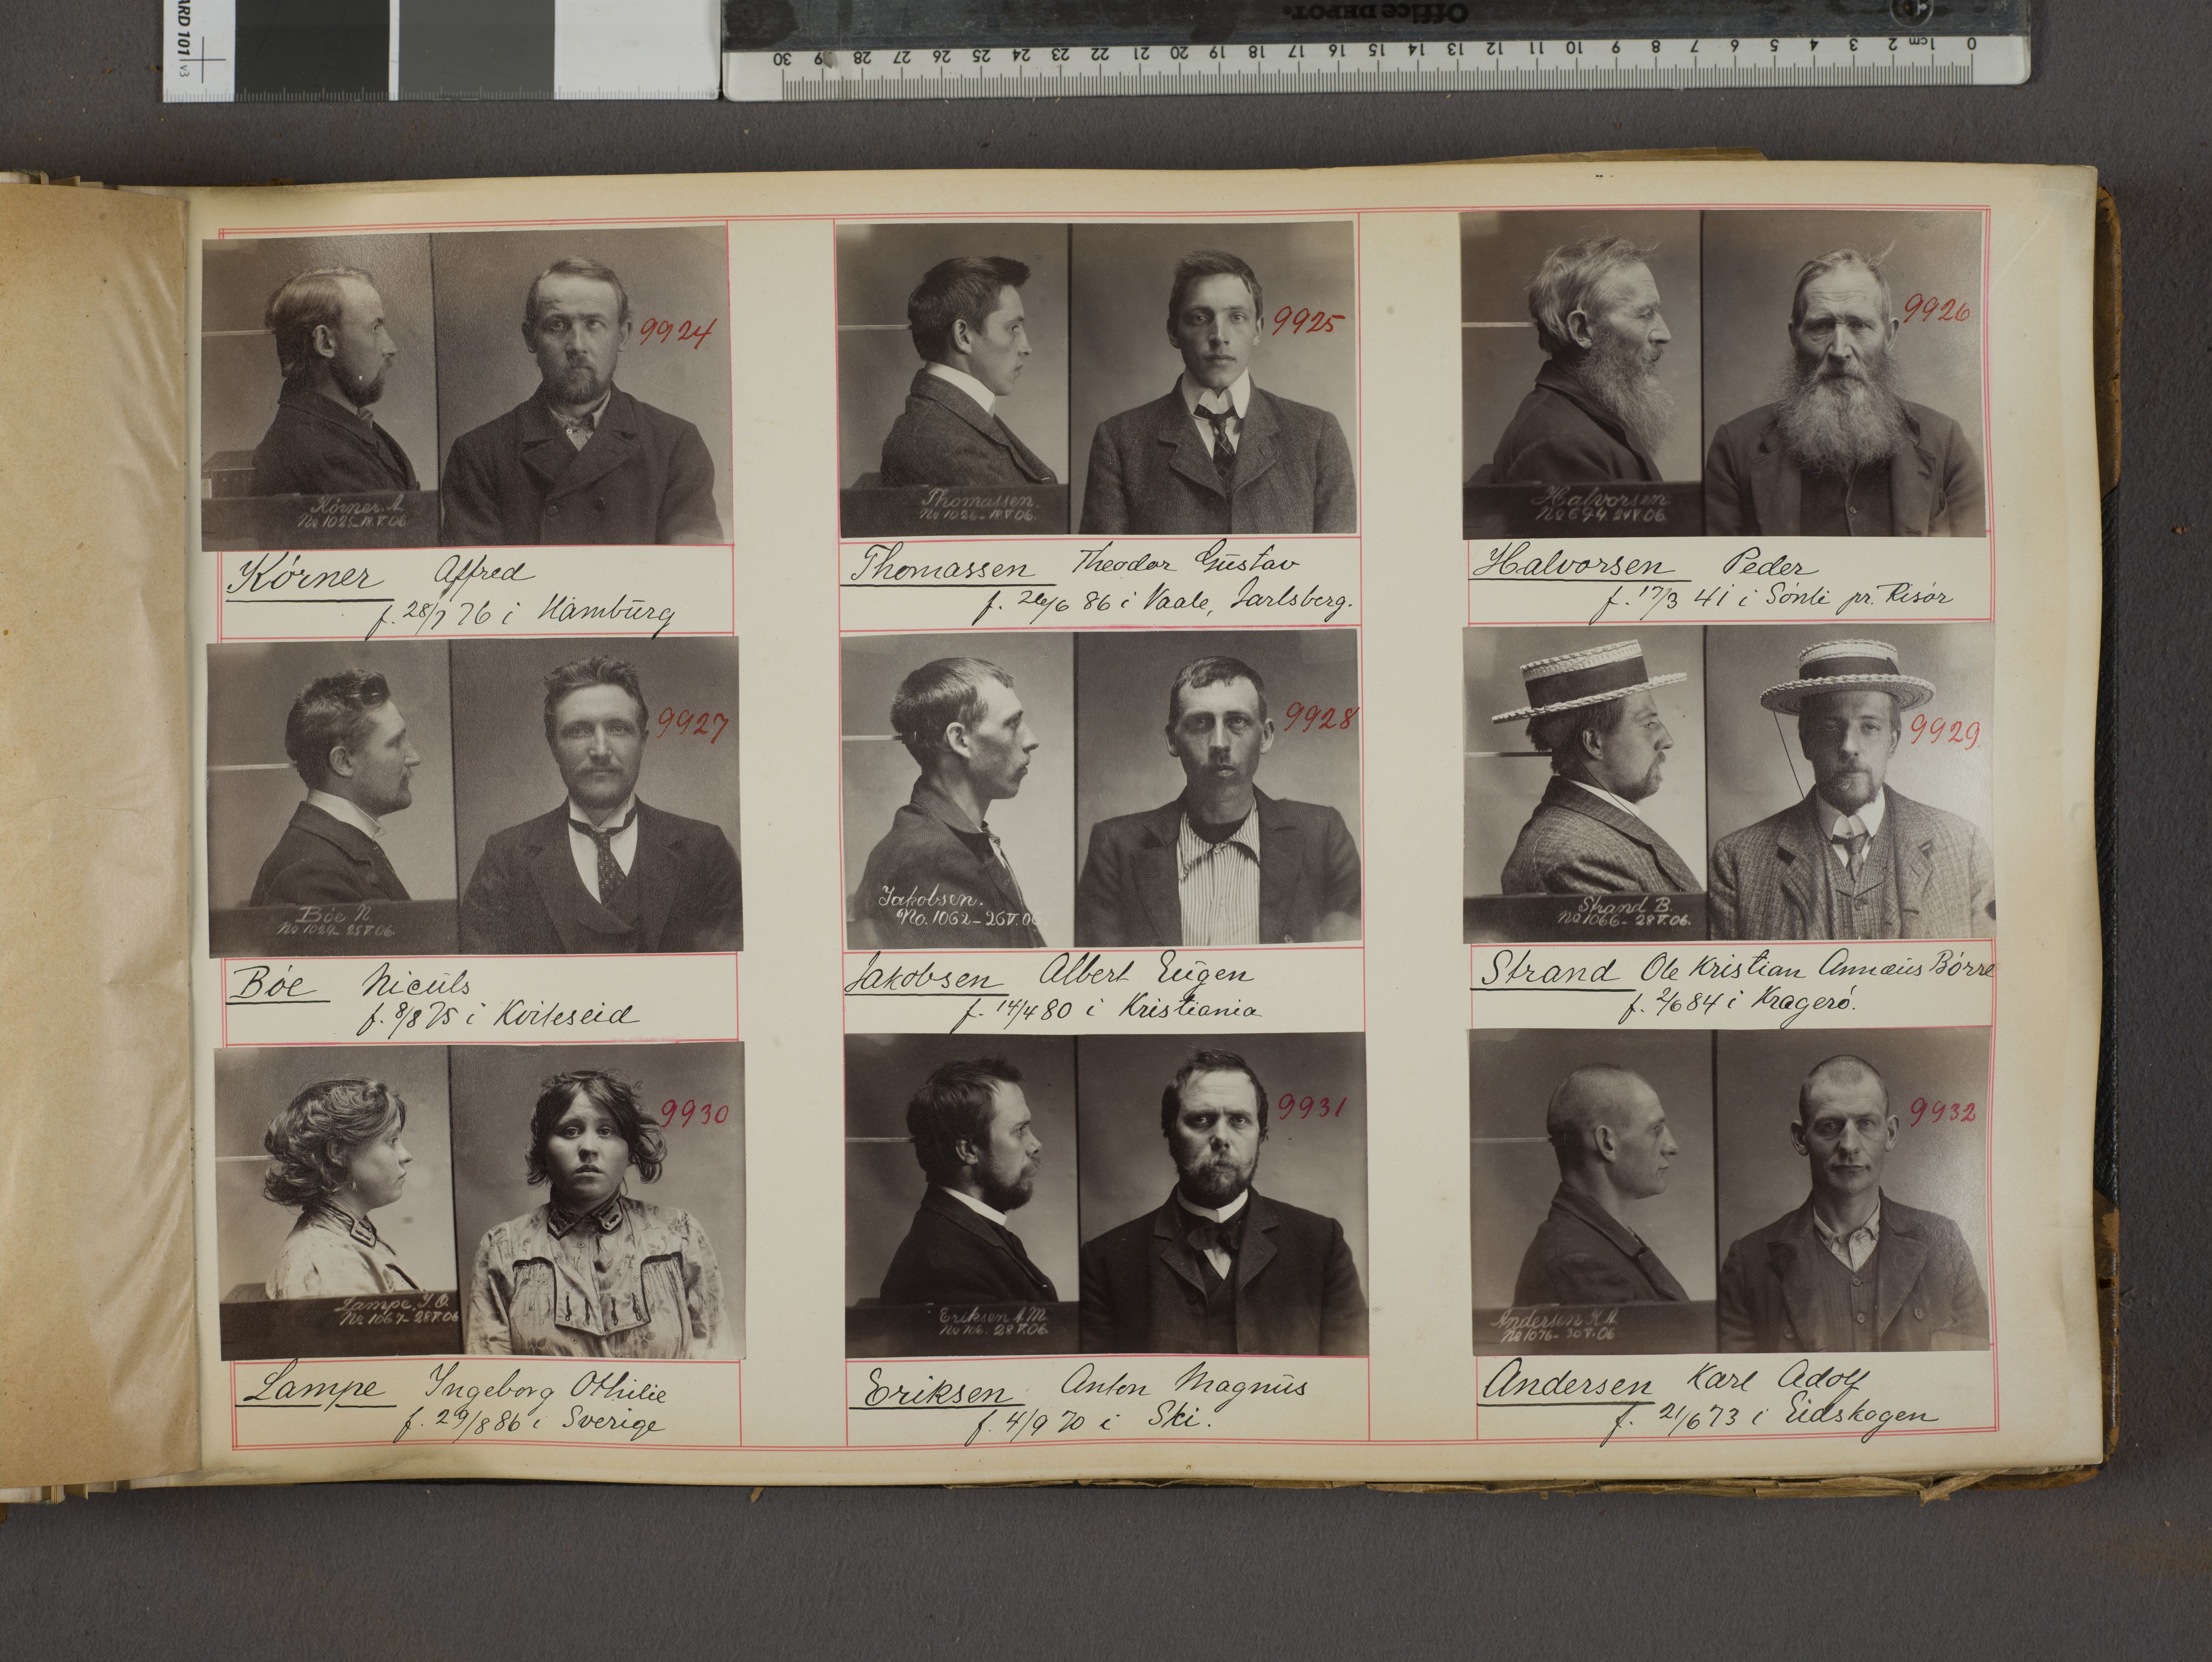 ARD 101 v3
Office DEPOT.
30 29 28 27 26 25 24 23 22 21 20 19 18 17 16 15 14 13 12 11 10 9 8 7 6 5 4 3 2 1cm 0
9924
Körner. A
No 1025 - 18.V.06
Körner Alfred
f. 28/7 76 i Hamburg
9925
Thomassen.
No 1026 - 18.V.06.
Thomassen Theodor Gustav
f. 26/6 86 i Vaale, Jarlsberg.
9926
Halvorsen
No 694. 24.V.06.
Halvorsen Peder
f. 17/3 41 i Sönli pr. Risör
9927
Böe N
No 1024 - 25.V.06.
Böe Niculs
f. 8/8 75 i Kviteseid
9928
Jakobsen.
No. 1062 - 26.V.06
Jakobsen Albert Eugen
f. 14/4 80 i Kristiania
9929
Strand B.
No 1066 - 28.V.06.
Strand Ole Kristian Annæus Börre
f. 2/6 84 i Kragerö.
9930
Lampe, I. O.
No 1067 - 28.V.06
Lampe Ingeborg Othilie
f. 29/8 86 i Sverige
9931
Eriksen A. M.
No 106. 28.V.06.
Eriksen Anton Magnus
f. 4/9 70 i Ski.
9932
Andersen K. A.
No 1076 - 30.V.06
Andersen Karl Adolf
f. 21/6 73 i Eidskogen